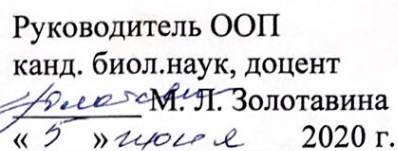 Руководитель ООП
канд. биол.наук, доцент
М. Л. Золотавина
« 5 » июня 2020 г.